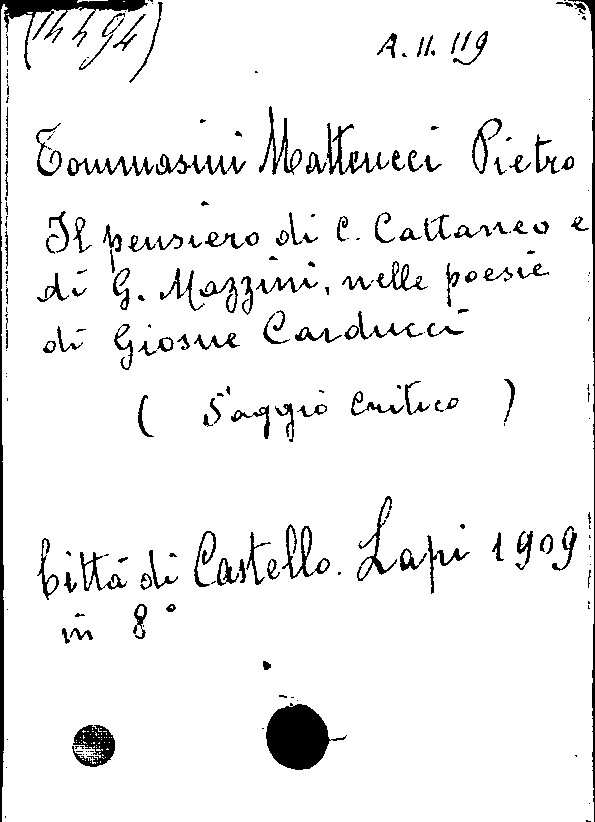 (14494)
A. II. 119
Tommasini Matteucci Pietro
Il pensiero di C. Cattaneo e
di G. Mazzini, nelle poesie
di Giosue Carducci
( Saggio Critico )
Città di Castello. Lapi 1909
in 8°